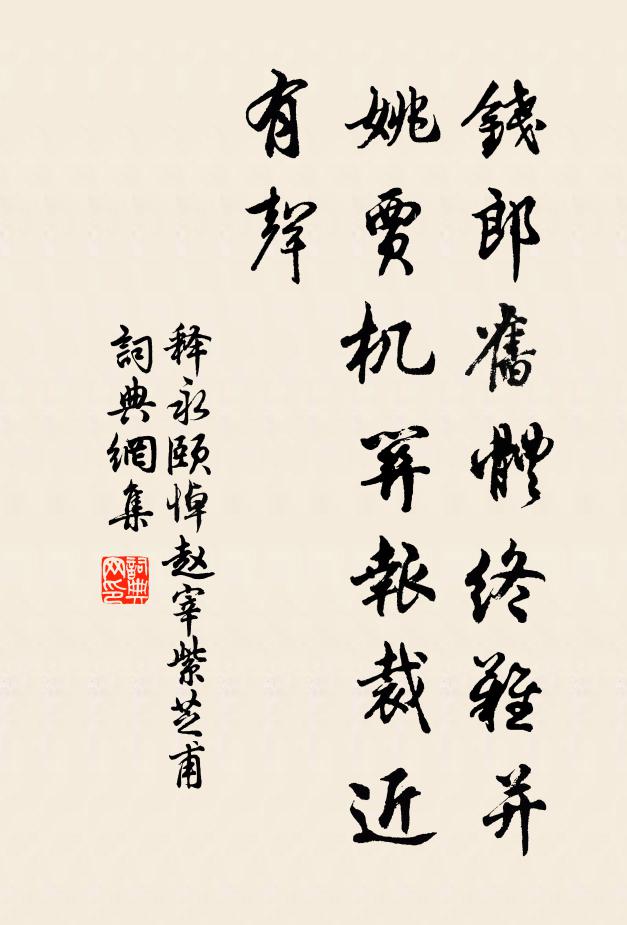 錢郎舊體終難并
姚賈机報裁近
有聲
释永颐悼赵宰紫芝甫
詞典網集
詞典网印